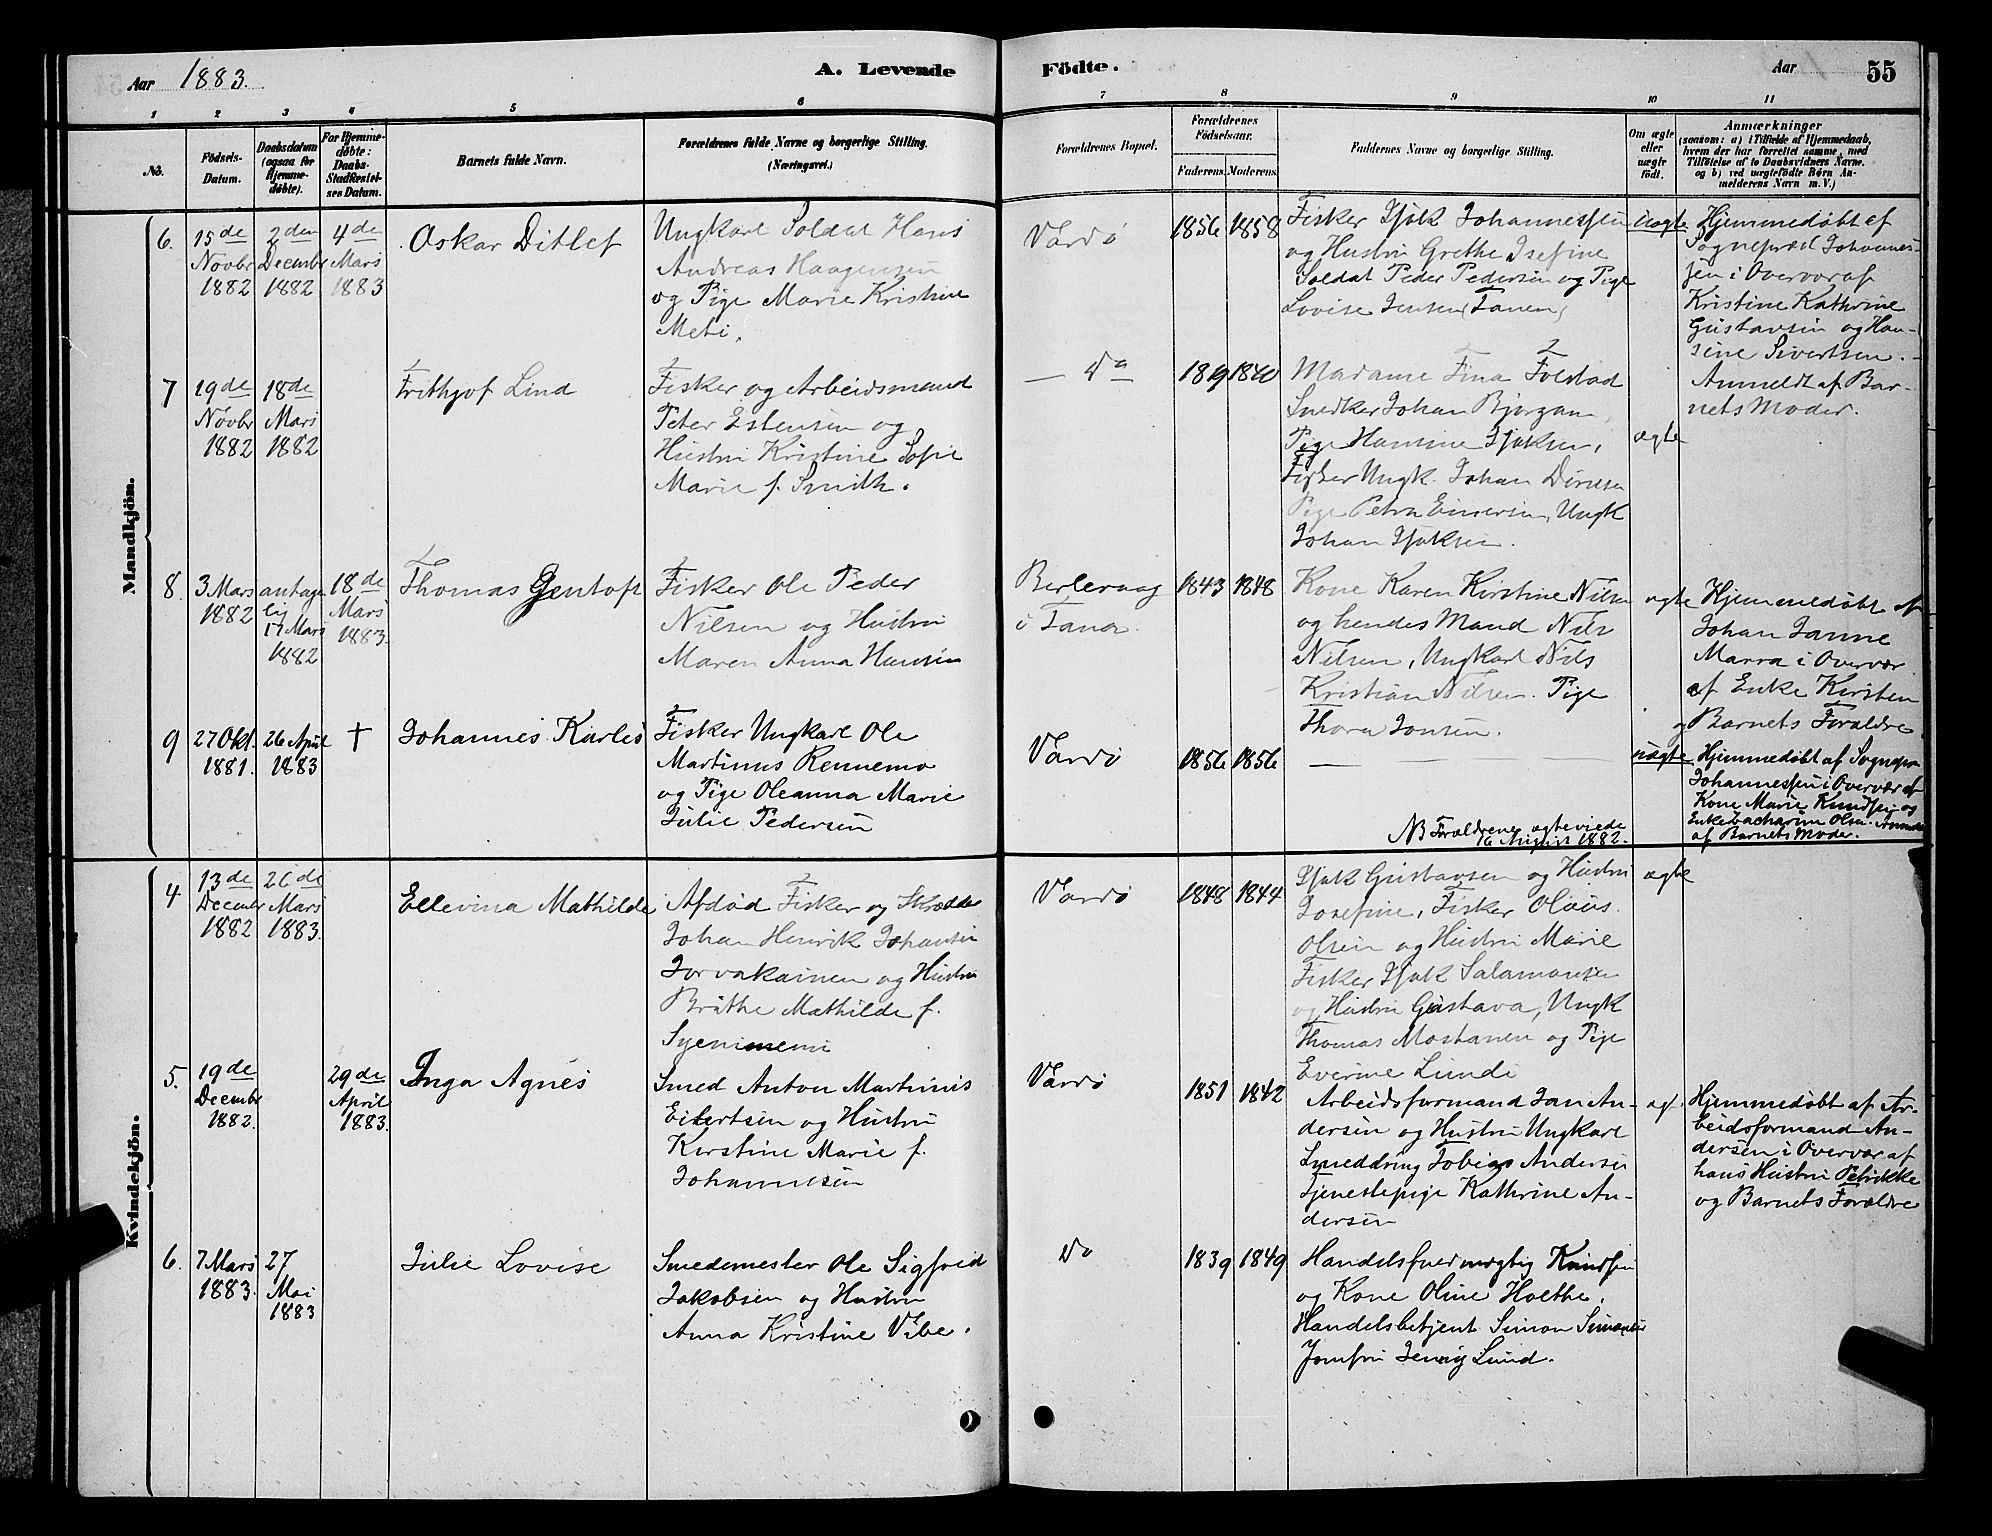 Aar 1883. A. Levende Födte. Aar 55
1 2 3 4 5 6 7 8 9 10 11
No.
Födsels-
Datum.
Daabsdatum
(ogsaa for
Hjemme-
döbte).
For Hjemme-
döbte:
Daabs-
Stadfæstel-
ses Datum.
Barnets fulde Navn.
Forældrenes fulde Navne og borgerlige Stilling.
(Næringsvei.)
Forældrenes Bopæl.
Forældrenes
Födselsaar.
Faderens. Moderens.
Faddernes Navne og borgerlige Stilling.
Om ægte
eller
uægte
födt.
Anmærkninger
(saasom: a) i Tilfælde af Hjemmedaab,
hvem der har forrettet samme, med
Tilföielse af to Daabsvidners Navne.
og b) ved uægtefödte Börn An-
melderens Navn m. V.)
Mandkjön.
6.
15de
Novbr
1882
2den
Decembr
1882
4de
Mars
1883
Oskar Ditlef
Ungkarl Soldat Hans
Andreas Haagensen
og Pige Marie Kristine
Meti.
Vardø
1856 1858
Fisker Isak Johannessen
og Hustru Grethe Josefine
Soldat Peder Pedersen og Pige
Lovise Jensen (Tanen)
Uægte
Hjemmedøbt af
Sognepræst Johannes-
sen i Overvær af
Kristine Kathrine
Gustavsen og Han-
sine Sivertsen.
Anmeldt af Bar-
nets Moder.
7
19de
Novbr
1882
18de
Mars
1882
Frithjof Lind
Fisker og Arbeidsmand
Peter Estensen og
Hustru Kristine Sofie
Marie f. Smith.
— do —
1819 1840
Madame Fina Folstad
Snedker Johan Bjørgan
Pige Hansine Isaksen,
Fisker Ungk. Johan
Pige Petra Einersen, Ungk
Johan Isaksen.
ægte
8.
3 Mars
1882
antage
lig
17 Mars
1882
18de
Mars
1883.
Thomas Gentoft
Fisker Ole Peder
Nilsen og Hustru
Maren Anna Hansen
Berlevaag
i Tana
1843 1848
Kone Karen Kirstine Nilsen
og hendes Mand Nils
Nilsen, Ungkarl Nils
Kristian Nilsen. Pige
Thora Jonsen.
ægte
Hjemmedøbt af
Johan Janne
Marra i Overvær
af Enke Kirsten
og Barnets Forældre
9
27 Okt.
1881.
26 April
1883
†
Johannes Karles
Fisker Ungkarl Ole
Martinus Rennemo
og Pige Oleanna Marie
Julie Pedersen
Vardø
1856 1856
— — — —
NB Forældrene ægteviede
16 August 1882.
uægte
Hjemmedøbt af Sognepr
Johannessen i Overvær af
Kone Marie Knudsen og
Enke Zacharine Olsen. Anmeldt
af Barnets Moder.
Kvindekjön.
4
13de
Decembr
1882
26de
Mars
1883.
Ellevina Mathilde
Afdød Fisker og Skrædder
Johan Henrik Johansen
Jorvakainen og Hustru
Brithe Mathilde f.
Vardø
1848 1844
Isak Gustavsen og Hustru
Josefine, Fisker Olaus
Olsen og Hustru Marie
Fisker Isak Salamonsen
og Hustru Gustava, Ungk
Thomas Mostanen og Pige
Everine Lunde
ægte
5.
19de
Decembr
1882.
29de
April
1883.
Inga Agnes
Smed Anton Martinus
Eilertsen og Hustru
Kirstine Marie f.
Johannesen
Vardø
1851 1842
Arbeidsformand Jan An-
dersen og Hustru Ungkarl
Smeddreng Tobias Andersen
Tjenestepige Kathrine An-
dersen
ægt.
Hjemmedøbt af Ar-
beidsformand An-
dersen i Overvær af
hans Hustru Petrikke
og Barnets Forældre
6.
7 Mars
1883.
27
Mai
1883
Julie Lovise
Smedemester Ole Sigfred
Jakobsen og Hustru
Anna Kristine Vibe.
do
1839 1849
Handelsfuldmægtig Knudsen
og Kone Oline Holthe.
Handelsbetjent Simon Simonsen
Jomfru Jenny Lund.